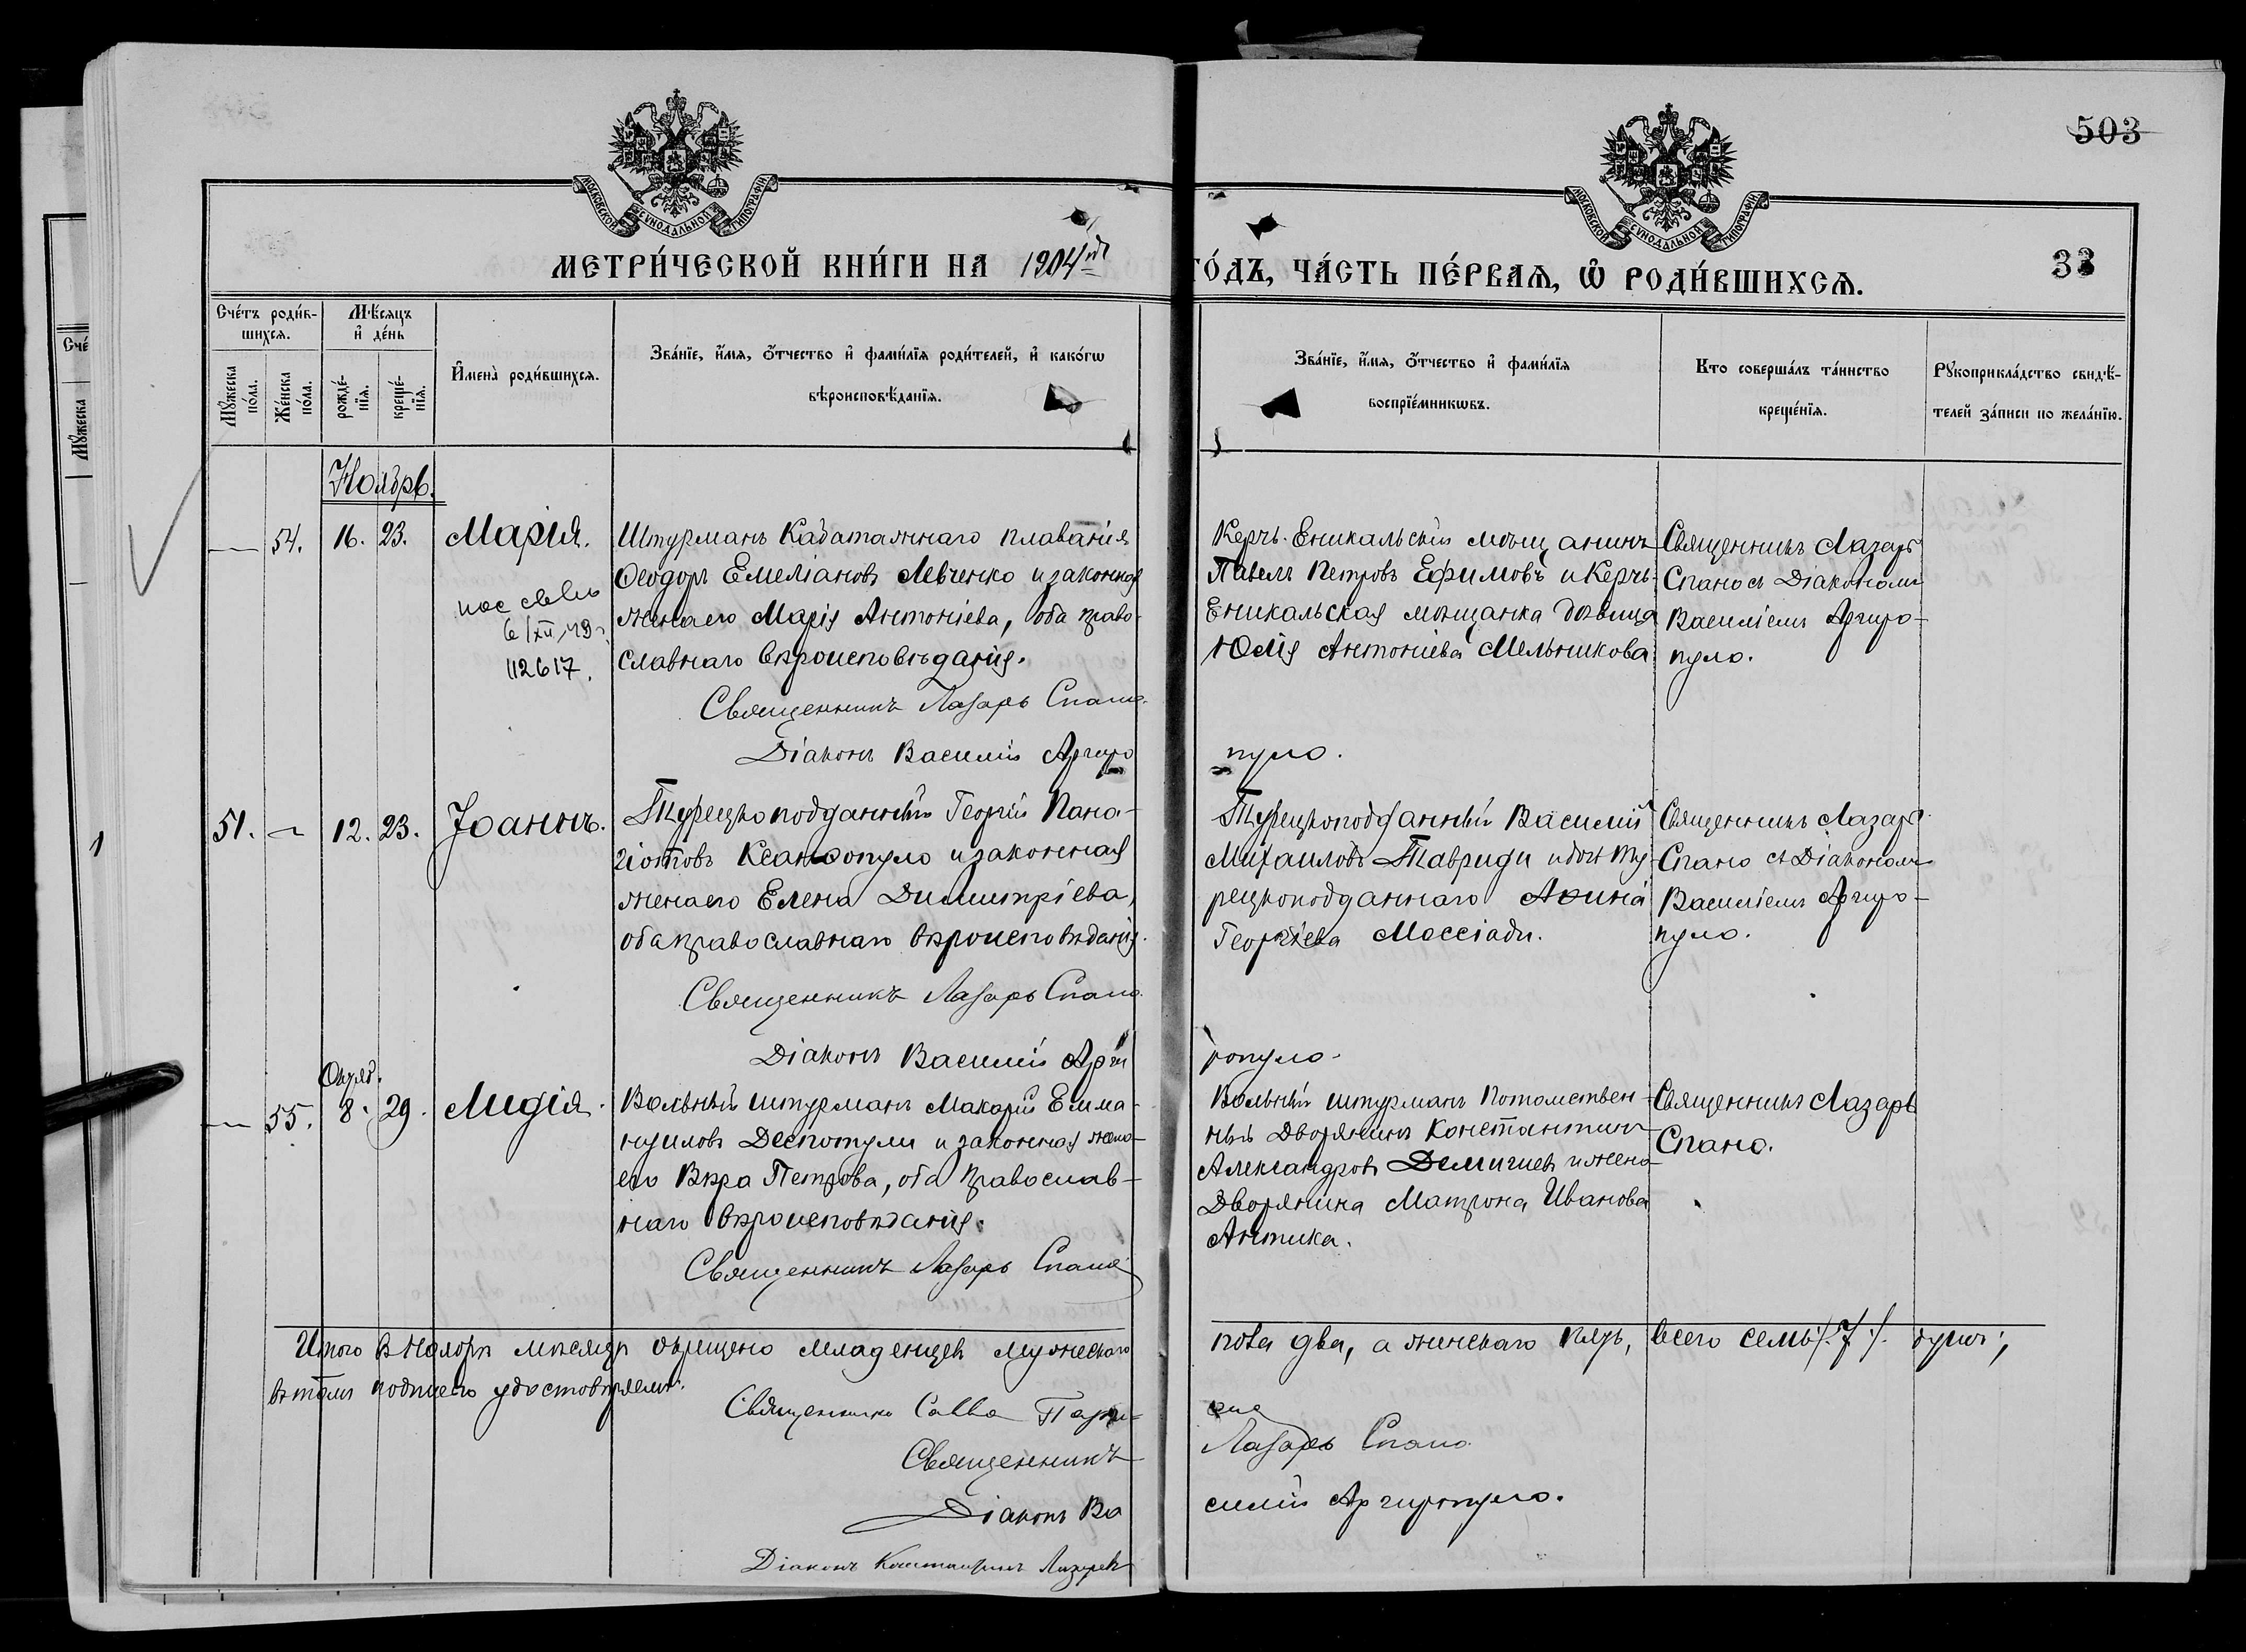 503
МОСКОВСКОЙ СѴНОДАЛЬНОЙ ТИПОГРАФІИ
МОСКОВСКОЙ СѴНОДАЛЬНОЙ ТИПОГРАФІИ
МЕТРИ́ЧЕСКОЙ КНИ́ГИ НА 1904 й ГО́ДЪ, ЧА́СТЬ ПЕ́РВАѦ, Ѡ РОДИ́ВШИХСѦ.
33
Сче́тъ роди́в-
шихсѧ.
Мꙋ́жеска по́ла.
Же́нска по́ла.
Мѣ́сѧцъ и҆ де́нь
рожде́-
нїѧ.
креще́-
нїѧ.
И҆мена̀ роди́вшихсѧ.
Зва́нїе, и҆́мѧ, ѻ҆́тчество и҆ фами́лїѧ роди́телей, и҆ како́гѡ
вѣроисповѣ́данїѧ.
Зва́нїе, и҆́мѧ, ѻ҆́тчество и҆ фами́лїѧ
воспрїе́мникѡвъ.
Кто соверша́лъ та́инство
креще́нїѧ.
Рꙋкоприкла́дство свидѣ́-
телей за́писи по жела́нїю.
Ноябрь.
54. 16. 23. Марія.
6/XII
112617.
Штурманъ Каботажнаго плаванія
Ѳеодоръ Емеліановъ Левченко и законная
жена его Марія Антоніева, оба право-
славнаго вѣроисповѣданія.
Священникъ Лазарь Спано.
Діаконъ Василій Аргиро
пуло.
Керчь-Еникальскій мѣщанинъ
Павелъ Петровъ Ефимовъ и Керчь-
Еникальская мѣщанка дѣвица
Юлія Антоніева Мельникова
Священникъ Лазарь
Спано съ Діакономъ
Василіемъ Аргиро-
пуло.
51. 12. 23. Іоаннъ.
Турецкоподданный Георгій Пана-
гіотовъ Ксанфопуло и законная
жена его Елена Димитріева,
оба православнаго вѣроисповѣданія.
Священникъ Лазарь Спано.
Діаконъ Василій Арги
ропуло.
Турецкоподданный Василій
Михаиловъ Тавриди и дочь Ту-
рецкоподданнаго Аѳина
Георгіева Моссіади.
Священникъ Лазарь
Спано съ Діакономъ
Василіемъ Аргиро-
пуло.
55. 8. 29. Лидія.
Вольный штурманъ Макарій Емма-
нуиловъ Деспотули и законная жена
его Вѣра Петрова, оба православ-
наго вѣроисповѣданія.
Священникъ Лазарь Спано
Вольный штурманъ Потомствен-
ный Дворянинъ Константинъ
Александровъ Демичевъ и жена
Дворянина Матрона Иванова
Антика.
Священникъ Лазарь
Спано.
Итого въ Ноябрѣ мѣсяцѣ окрещено младенцевъ мужескаго пола два, а женскаго пять, всего семь /.7./. душъ;
въ томъ подписью удостовѣряемъ:
Священникъ Савва
Священникъ Лазарь Спано
Діаконъ Василій Аргиропуло.
Діаконъ Константинъ